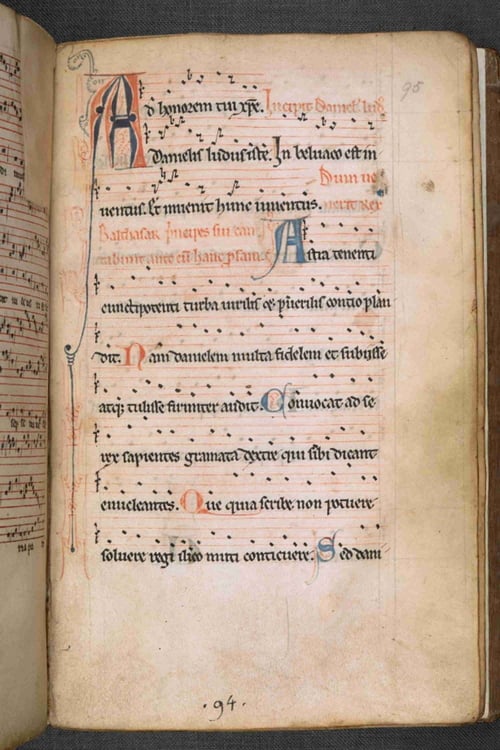 95
Ad honorem tui xpe. Incipit Daniel' lud'
Danielis ludus iste. In beluaco est in
Dum ue
uentus. Et inuenit hunc iuuentus. nerit Rex
Balthasar Principes sui can
tabunt ante eū hanc psam. Astra tenenti
cunctipotenti turba uirilis et puerilis contio plau
dit. Nam danielem multa fidelem et subiisse
atq; tulisse firmiter audit. Conuocat ad se
rex sapientes gramata dextre qui sibi dicant
enucleantes. Que quia scribe non potuere
soluere regi ilico muti conticuere. Sed dani
.94.